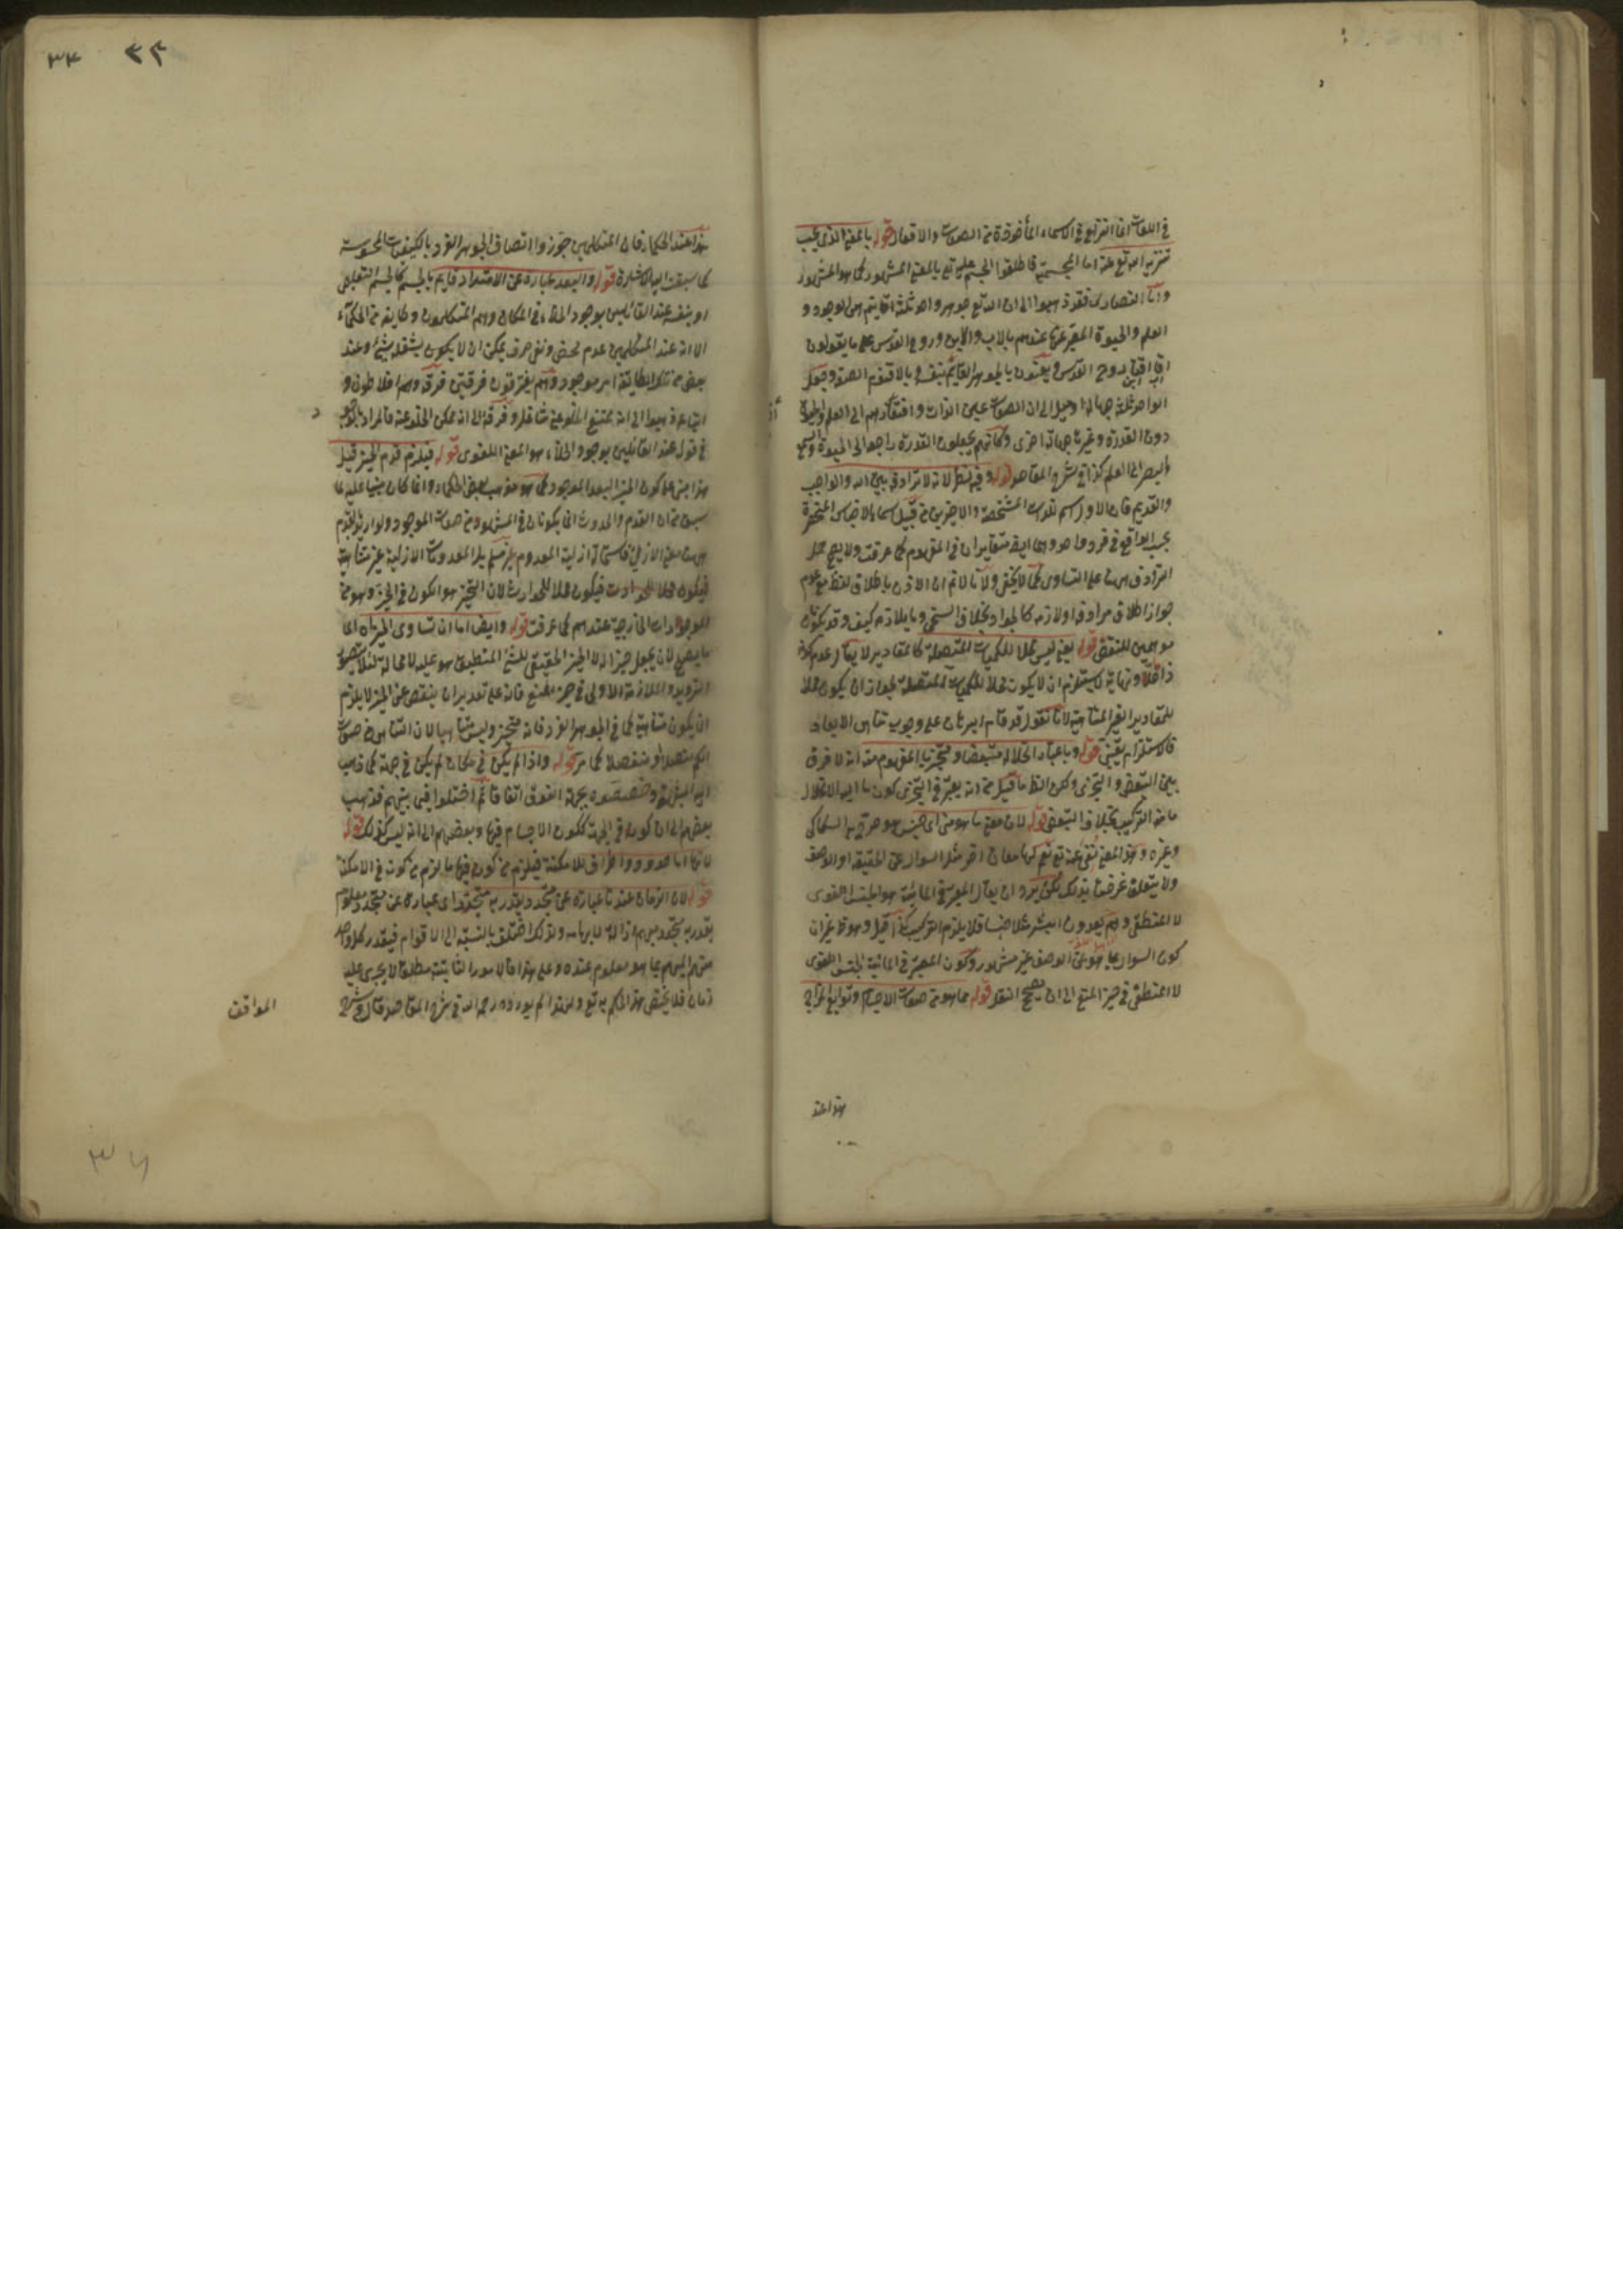 في اللغات انما النزاع في الاسماء المأخوذة من الصفات والافعال قوله بالمعنى الذي يجب
تنزيه الله تع عنه اما المجسمة فاطلقوا الجسم عليه تع بالمعنى المشهور كما هو المشهور
واما النصارى فقد ذهبوا الى ان الله تع جوهر واحد ثلثة اقانيم هي الوجود و
العلم والحيوة المعبر عنها عندهم بالاب والابن وروح القدس على ما يقولون
روح القدس ويعنون بالجوهر القائم بنفسه وبالاقنوم الصفة وجعل
الواحد ثلثة جهالة او ميل الى ان الصفات عين الذات واقتصارهم الى العلم والحيوة
دون القدرة وغيرها جهالة اخرى وكانهم يجعلون القدرة راجعة الى الحيوة والسمع
والبصر الى العلم كذا في شرح المقاصد قوله وفيه نظر لانه لا ترادف بين الله والواجب
والقديم فان الاول اسم للذات المشخصة والاخيرين من قبيل اسماء الاجناس المنحصرة
بحسب الواقع في فرد واحد وهما ايضا متغايران في المفهوم كما عرفت ولا يصح حمل
الترادف ههنا على التساوي كما لا يخفى ولانا لا نم ان الاذن باطلاق لفظ مع عدم
جواز اطلاق مرادفه او لازمه كالجواد بخلاف السخي وما يلازم كيف وقد يكونان
موهمين للنقص قوله يعني ليس محلا للكميات المتصلة كالمقادير لا يقال عدم كونه
ذا حد ونهاية لا يستلزم ان لا يكون محلا للكميات المتصلة لجواز ان يكون محلا
للمقادير الغير المتناهية لانا نقول قد قام البرهان على وجوب تناهي الابعاد
فالاستلزام يقيني قوله وباعتبار انحلاله متبعضا ومتجزيا المفهوم منه انه لا فرق
بين التبعض والتجزي ولكن الظ ما قيل من انه يعتبر في التجزي كون ما اليه الانحلال
ما منه التركيب بخلاف التبعض قوله لان معنى ما هو من اي جنس هو صرح به السكاكي
وغيره وهذا المعنى نفى عنه تع نعم لها معان اخر مثل السؤال عن الحقيقة او الوصف
ولا يتعلق غرضنا بذلك لكن يرد ان يقال المعتبر في المائية هو الجنس اللغوي
لا المنطقي وهم يعدون البشر مثلا جنسا فلا يلزم التركيب كذا قيل وهو ظ غير ان
كون السؤال بما هو عن الوصف غير مشهور وكون المعتبر في المائية الجنس اللغوي
لا المنطقي في حيز المنع الى ان يصح النقل قوله مما هو من صفات الاجسام وتوابع المزاج
هذا عند
٣٤
هذا عند الحكماء فان المتكلمين جوزوا اتصاف الجوهر الفرد بالكيفيات المحسوسة
كما سبقت اليه الاشارة قوله والبعد عبارة عن الامتداد قايم بالجسم كالجسم التعليمي
او بنفسه عند القائلين بوجود الخلاء في المكان وهم المتكلمون وطايفة من الحكماء
الا انه عند المتكلمين عدم محض ونفي صرف يمكن ان لا يكون يشغله شيء وعند
بعض من تلك الطائفة امر موجود وهم يفترقون فرقتين فرقة وهم افلاطون و
اتباعه ذهبوا الى انه يمتنع الخلو عن شاغل وفرقة الى انه يمكن الخلو عنه فالمراد بالوجود
في قوله عند القائلين بوجود الخلاء هو المعنى اللغوي قوله فيلزم قدم الحيز قيل
هذا مبني على كون الحيز البعد الموجود كما هو مذهب بعض الحكماء واما كان مبنيا عليه ما
سبق من ان القدم والحدوث انما يكونان في المشهور من صفات الموجود ولو اريد بالقدم
ههنا معنى الازلي فاستحالة ازلية المعدوم غير مسلم بل المعدومات الازلية غير متناهية
فيكون محلا للحوادث فيكون محلا للحوادث لان التحيز هو الكون في الحيز وهو من
الموجودات الخارجية عندهم كما عرفت قوله وايضا اما ان تساوى الحيز اه انما
ما يصح لان يجعل حيزا له لا الحيز الحقيقي للشيء المنطبق هو عليه لا محالة لئلا يتصور
الترديد والملازمة الاولى في حيز المنع فانه على تقدير ان ينقص عن الحيز لا يلزم
ان يكون متناهيا كما في الجوهر الفرد فانه متحيز وليس متناهيا لان التناهي من صفات
الكم متصلا او منفصلا كما مر قوله واذا لم يكن في مكان لم يكن في جهة كما ذهب
اليه المشبهة وخصصوه بجهة الفوق اتفاقا ثم اختلفوا فيما بينهم فذهب
بعضهم الى ان كونه في الجهة ككون الاجسام فيها وبعضهم الى انه ليس كذلك قوله
لانها اما حدود واطراف للامكنة فيلزم من كونه فيها ما يلزم من كونه في الامكنة
قوله لان الزمان عندنا عبارة عن متجدد يقدر به متجدد اي عبارة عن متجدد معلوم
يقدر به متجدد مبهم ازالة لابهامه ولذلك اختلف بالنسبة الى الاقوام فيقدر كل واحد
منهم المبهم بما هو معلوم عنده وعلى هذا فالامور الثابتة مطلقا لا يجري عليه
زمان فلا يختص هذا الحكم به تع ولهذا لم يورده رحمه الله في شرح المقاصد فقال في شرح
المواقف